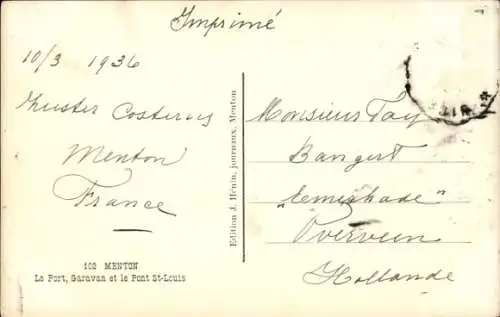 Imprimé
10/3 1936
Zuster Costerus
Menton
France
102 MENTON
Le Port, Garavan et le Pont St-Louis
Edition J. Hénin, journaux, Menton
Monsieur Tay
Bangert
Overveen
Hollande